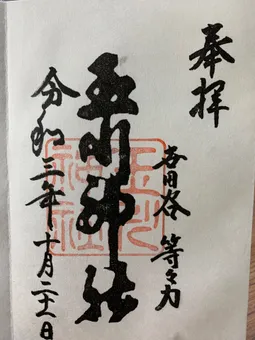 奉拝
世田谷 等々力
玉川神社
令和三年十月二十一日
玉川
神社